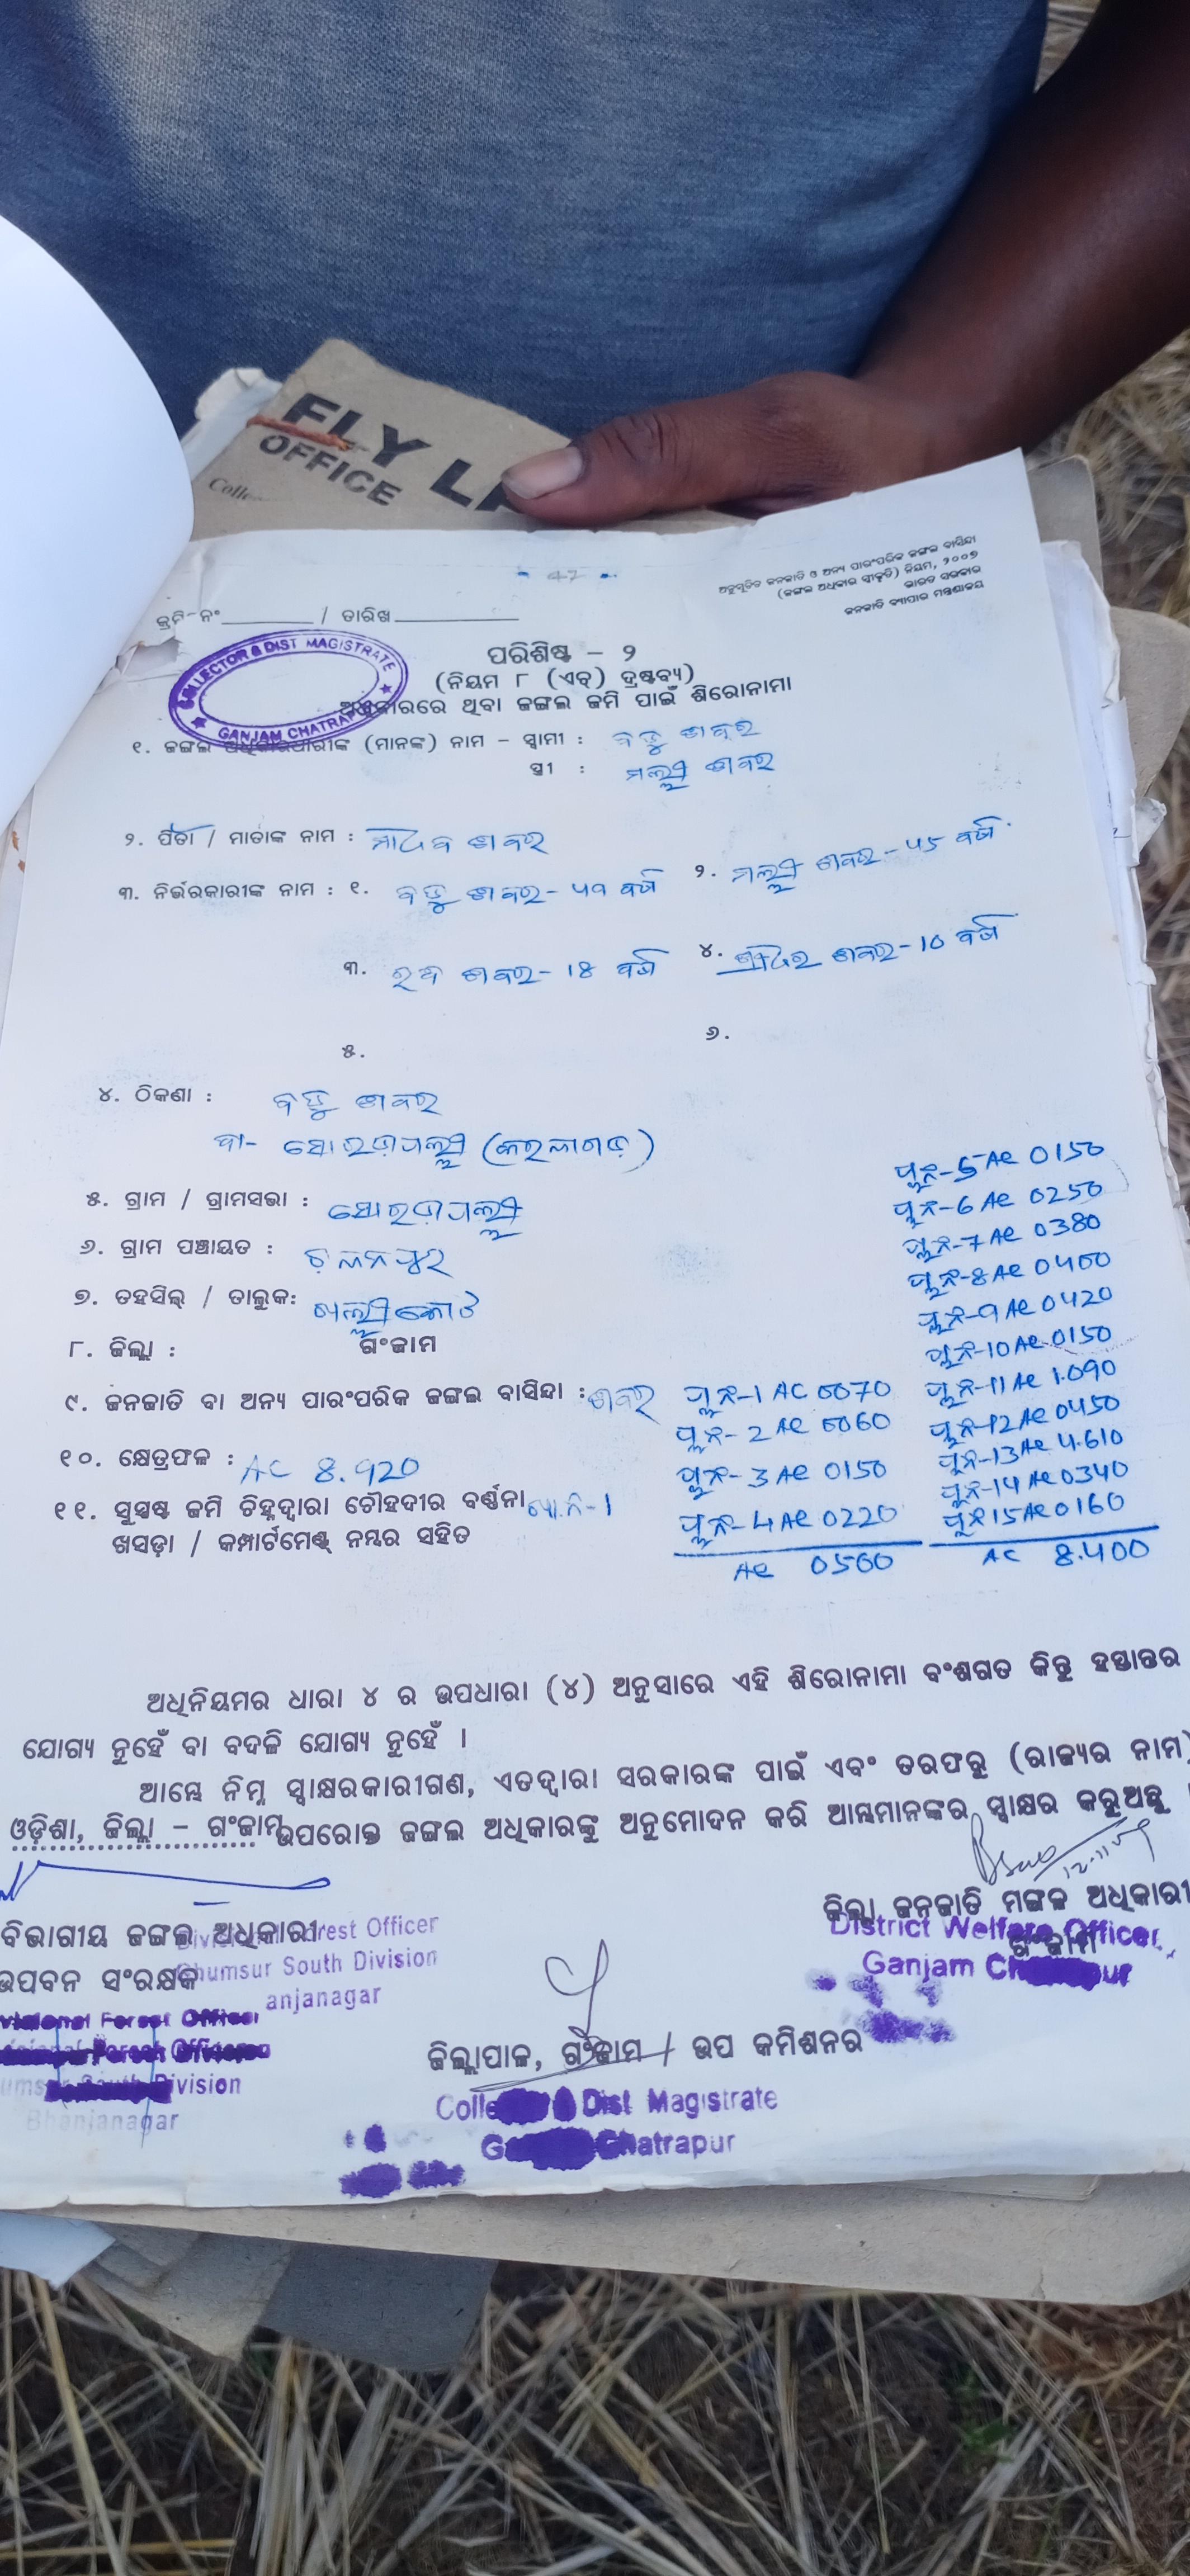 FLY L
OFFICE
Colle
- 42 -
ଅନୁସୂଚିତ ଜନଜାତି ଓ ଅନ୍ୟ ପାରଂପରିକ ଜଙ୍ଗଲ ବାସିନ୍ଦା
(ଜଙ୍ଗଲ ଅଧିକାର ସ୍ୱୀକୃତି) ନିୟମ, ୨୦୦୭
ଭାରତ ସରକାର
ଜନଜାତି ବ୍ୟାପାର ମନ୍ତ୍ରଣାଳୟ
କ୍ରମି-ନଂ________ / ତାରିଖ__________
COLLECTOR & DIST MAGISTRATE
GANJAM CHATRAPUR
ପରିଶିଷ୍ଟ - ୨
(ନିୟମ ୮ (ଏଚ୍) ଦ୍ରଷ୍ଟବ୍ୟ)
ଅଧିକାରରେ ଥିବା ଜଙ୍ଗଲ ଜମି ପାଇଁ ଶିରୋନାମା
୧. ଜଙ୍ଗଲ ଅଧିକାରଧାରୀଙ୍କ (ମାନଙ୍କ) ନାମ - ସ୍ୱାମୀ : ବଡୁ ଶବର
ସ୍ତ୍ରୀ : ମଲ୍ଲୀ ଶବର
୨. ପିତା / ମାତାଙ୍କ ନାମ : ମାଧବ ଶବର
୩. ନିର୍ଭରକାରୀଙ୍କ ନାମ : ୧. ବଡୁ ଶବର - ୫୩ ବର୍ଷ ୨. ମଲ୍ଲୀ ଶବର - ୪୫ ବର୍ଷ
୩. ଶବର - 18 ବର୍ଷ ୪. ଶବର - 10 ବର୍ଷ
୫. ୬.
୪. ଠିକଣା : ବଡୁ ଶବର
ସୋରଡ଼ାପଲ୍ଲୀ
୫. ଗ୍ରାମ / ଗ୍ରାମସଭା : ସୋରଡ଼ାପଲ୍ଲୀ
୬. ଗ୍ରାମ ପଞ୍ଚାୟତ :
୭. ତହସିଲ୍ / ତାଲୁକ: ଖଲ୍ଲୀକୋଟ
୮. ଜିଲ୍ଲା : ଗଂଜାମ
୯. ଜନଜାତି ବା ଅନ୍ୟ ପାରଂପରିକ ଜଙ୍ଗଲ ବାସିନ୍ଦା : ଶବର
୧୦. କ୍ଷେତ୍ରଫଳ : AC 8.920
୧୧. ସୁସ୍ପଷ୍ଟ ଜମି ଚିହ୍ନଦ୍ୱାରା ଚୌହଦୀର ବର୍ଣ୍ଣନା
ଖସଡ଼ା / କମ୍ପାର୍ଟମେଣ୍ଟ୍ ନମ୍ଭର ସହିତ
ପ୍ଲଟ-1 AC 0070
ପ୍ଲଟ-2 AC 0060
ପ୍ଲଟ-3 AC 0150
ପ୍ଲଟ-4 AC 0220
AC 0500
ପ୍ଲଟ-5 AC 0150
ପ୍ଲଟ-6 AC 0250
ପ୍ଲଟ-7 AC 0380
ପ୍ଲଟ-8 AC 0400
ପ୍ଲଟ-9 AC 0420
ପ୍ଲଟ-10 AC 0150
ପ୍ଲଟ-11 AC 1.090
ପ୍ଲଟ-12 AC 0450
ପ୍ଲଟ-13 AC 4.610
ପ୍ଲଟ-14 AC 0340
ପ୍ଲଟ 15 AC 0160
AC 8.400
ଅଧିନିୟମର ଧାରା ୪ ର ଉପଧାରା (୪) ଅନୁସାରେ ଏହି ଶିରୋନାମା ବଂଶଗତ କିନ୍ତୁ ହସ୍ତାନ୍ତର
ଯୋଗ୍ୟ ନୁହେଁ ବା ବଦଳି ଯୋଗ୍ୟ ନୁହେଁ ।
ଆମ୍ଭେ ନିମ୍ନ ସ୍ୱାକ୍ଷରକାରୀଗଣ, ଏତଦ୍ୱାରା ସରକାରଙ୍କ ପାଇଁ ଏବଂ ତରଫରୁ (ରାଜ୍ୟର ନାମ)
ଓଡ଼ିଶା, ଜିଲ୍ଲା - ଗଂଜାମ ଉପରୋକ୍ତ ଜଙ୍ଗଲ ଅଧିକାରଙ୍କୁ ଅନୁମୋଦନ କରି ଆମ୍ଭମାନଙ୍କର ସ୍ୱାକ୍ଷର କରୁଅଛୁ
ବିଭାଗୀୟ ଜଙ୍ଗଲ ଅଧିକାରୀ
ଉପବନ ସଂରକ୍ଷକ
Forest Officer
Ghumsur South Division
anjanagar
Division
Bhanjanagar
ଜିଲ୍ଲା ଜନଜାତି ମଙ୍ଗଳ ଅଧିକାରୀ
ଗଂଜାମ
District Welfare Officer,
Ganjam
ଜିଲ୍ଲାପାଳ, ଗଂଜାମ / ଉପ କମିଶନର
Dist Magistrate
Chatrapur